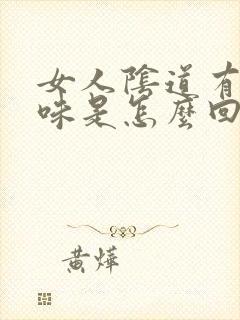 女人陰道有
味是怎麼回
黄燁